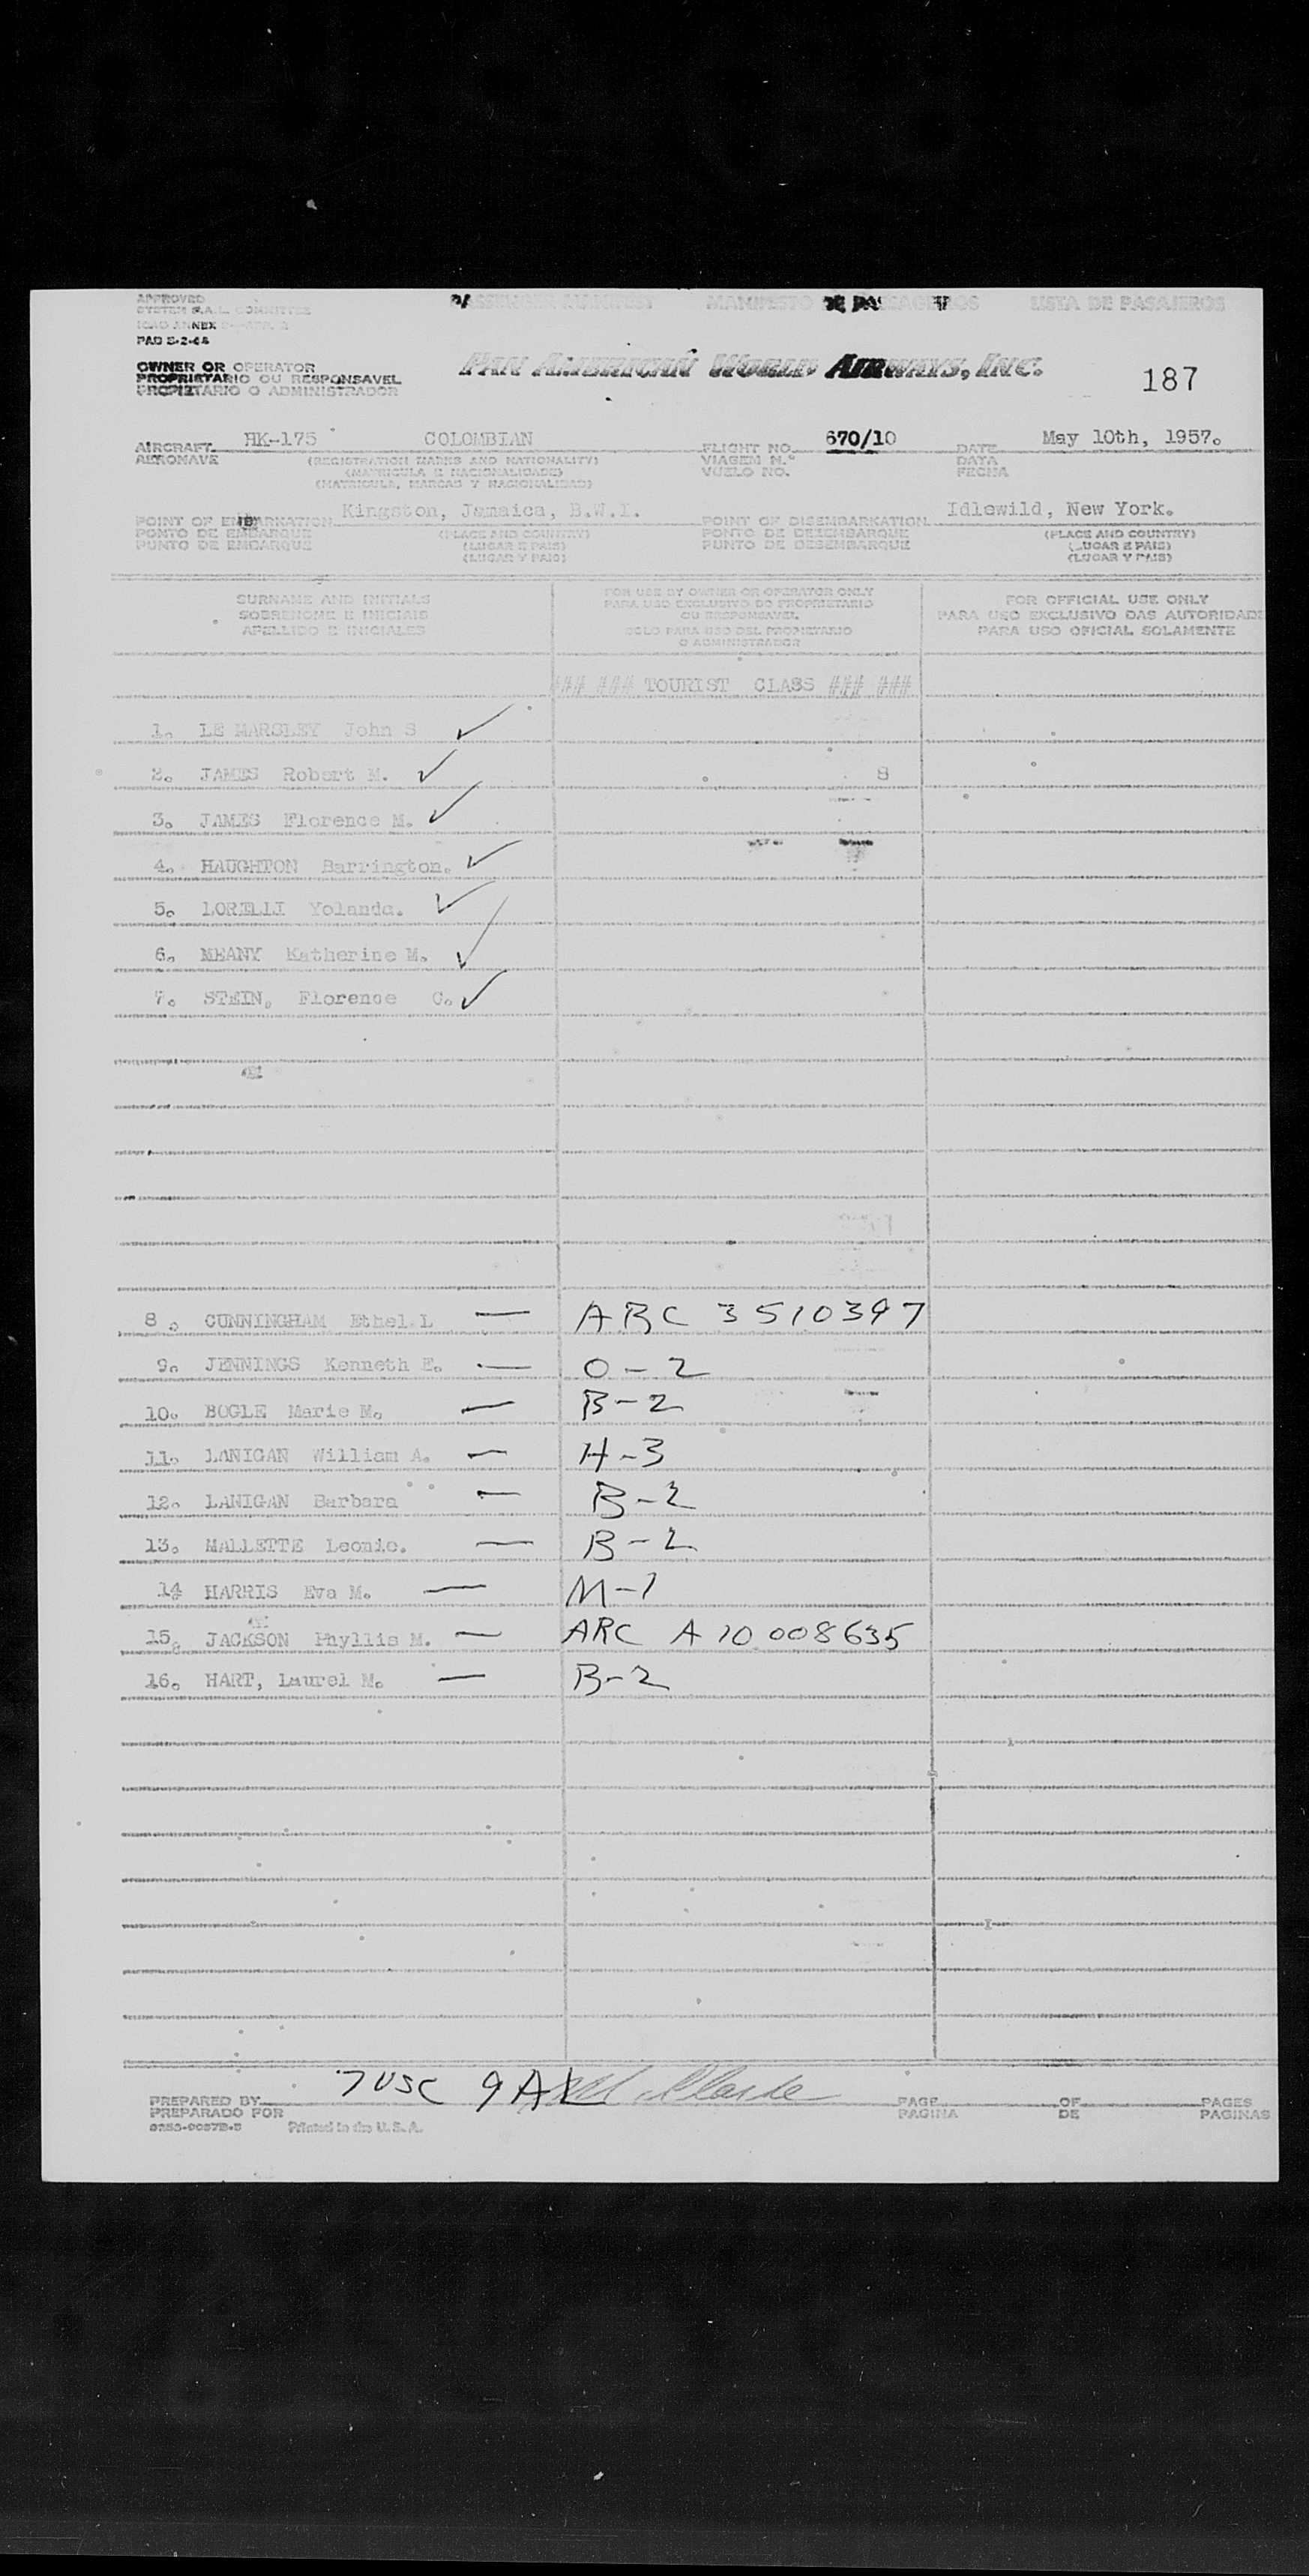 APPROVED PASSENGER MANIFEST MANIFESTO DE PASSAGEIROS LISTA DE PASAJEROS
SYSTEM F.A.L. COMMITTEE
ICAO ANNEX
PAD 5-2-44
OWNER OR OPERATOR
PROPRIETARIO OU RESPONSAVEL
PROPIETARIO O ADMINISTRADOR
PAN AMERICAN WORLD AIRWAYS, INC.
187
AIRCRAFT HK-175 COLOMBIAN FLIGHT NO. 670/10 DATE May 10th, 1957.
AERONAVE (REGISTRATION MARKS AND NATIONALITY) VIAGEM N.º DATA
(MATRICULA E NACIONALIDADE) VUELO NO. FECHA
(MATRICULA, MARCAS Y NACIONALIDAD)
POINT OF EMBARKATION Kingston, Jamaica, B.W.I. POINT OF DISEMBARKATION Idlewild, New York.
PONTO DE EMBARQUE (PLACE AND COUNTRY) PONTO DE DEZEMBARQUE (PLACE AND COUNTRY)
PUNTO DE EMBARQUE (LUGAR E PAIS) PUNTO DE DESEMBARQUE (LUGAR E PAIS)
(LUGAR Y PAIS) (LUGAR Y PAIS)
SURNAME AND INITIALS
SOBRENOME E INICIAIS
APELLIDO E INICIALES
FOR USE BY OWNER OR OPERATOR ONLY
PARA USO EXCLUSIVO DO PROPRIETARIO
OU RESPONSAVEL
SOLO PARA USO DEL PROPIETARIO
O ADMINISTRADOR
FOR OFFICIAL USE ONLY
PARA USO EXCLUSIVO DAS AUTORIDADE
PARA USO OFICIAL SOLAMENTE
### ### TOURIST CLASS ### ###
1. LE MARSLEY John S
2. JAMES Robert M. 8
3. JAMES Florence M.
4. HAUGHTON Barrington.
5. LORELLI Yolanda.
6. MEANY Katherine M.
7. STEIN, Florence C.
8. CUNNINGHAM Ethel L — ARC 3510397
9. JENNINGS Kenneth E. — O-2
10. BOGLE Marie M. — B-2
11. LANIGAN William A. — H-3
12. LANIGAN Barbara — B-2
13. MALLETTE Leonie. — B-2
14 HARRIS Eva M. — M-1
15. JACKSON Phyllis M. — ARC A 10 008635
16. HART, Laurel M. — B-2
7 USC 9 AL
PREPARED BY PAGE OF PAGES
PREPARADO POR PAGINA DE PAGINAS
Printed in the U.S.A.